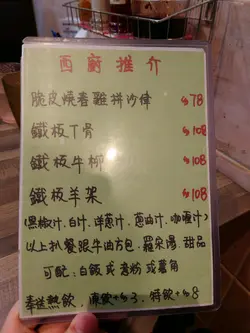 西廚推介
脆皮燒春雞拼沙律 $78
鐵板T骨 $108
鐵板牛柳 $108
鐵板羊架 $108
(黑椒汁.白汁.洋蔥汁.蔥油汁.咖喱汁)
以上扒餐跟牛油方包.羅宋湯.甜品
可配:白飯或意粉或薯角
奉送熱飲.凍飲+$3.特飲+$8